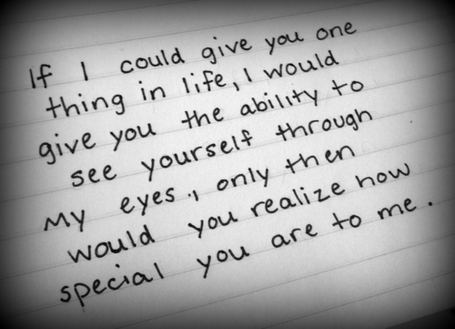 If I could give you one
thing in life, I would
give you the ability to
see yourself through
My eyes., only then
would you realize how
special you are to me.